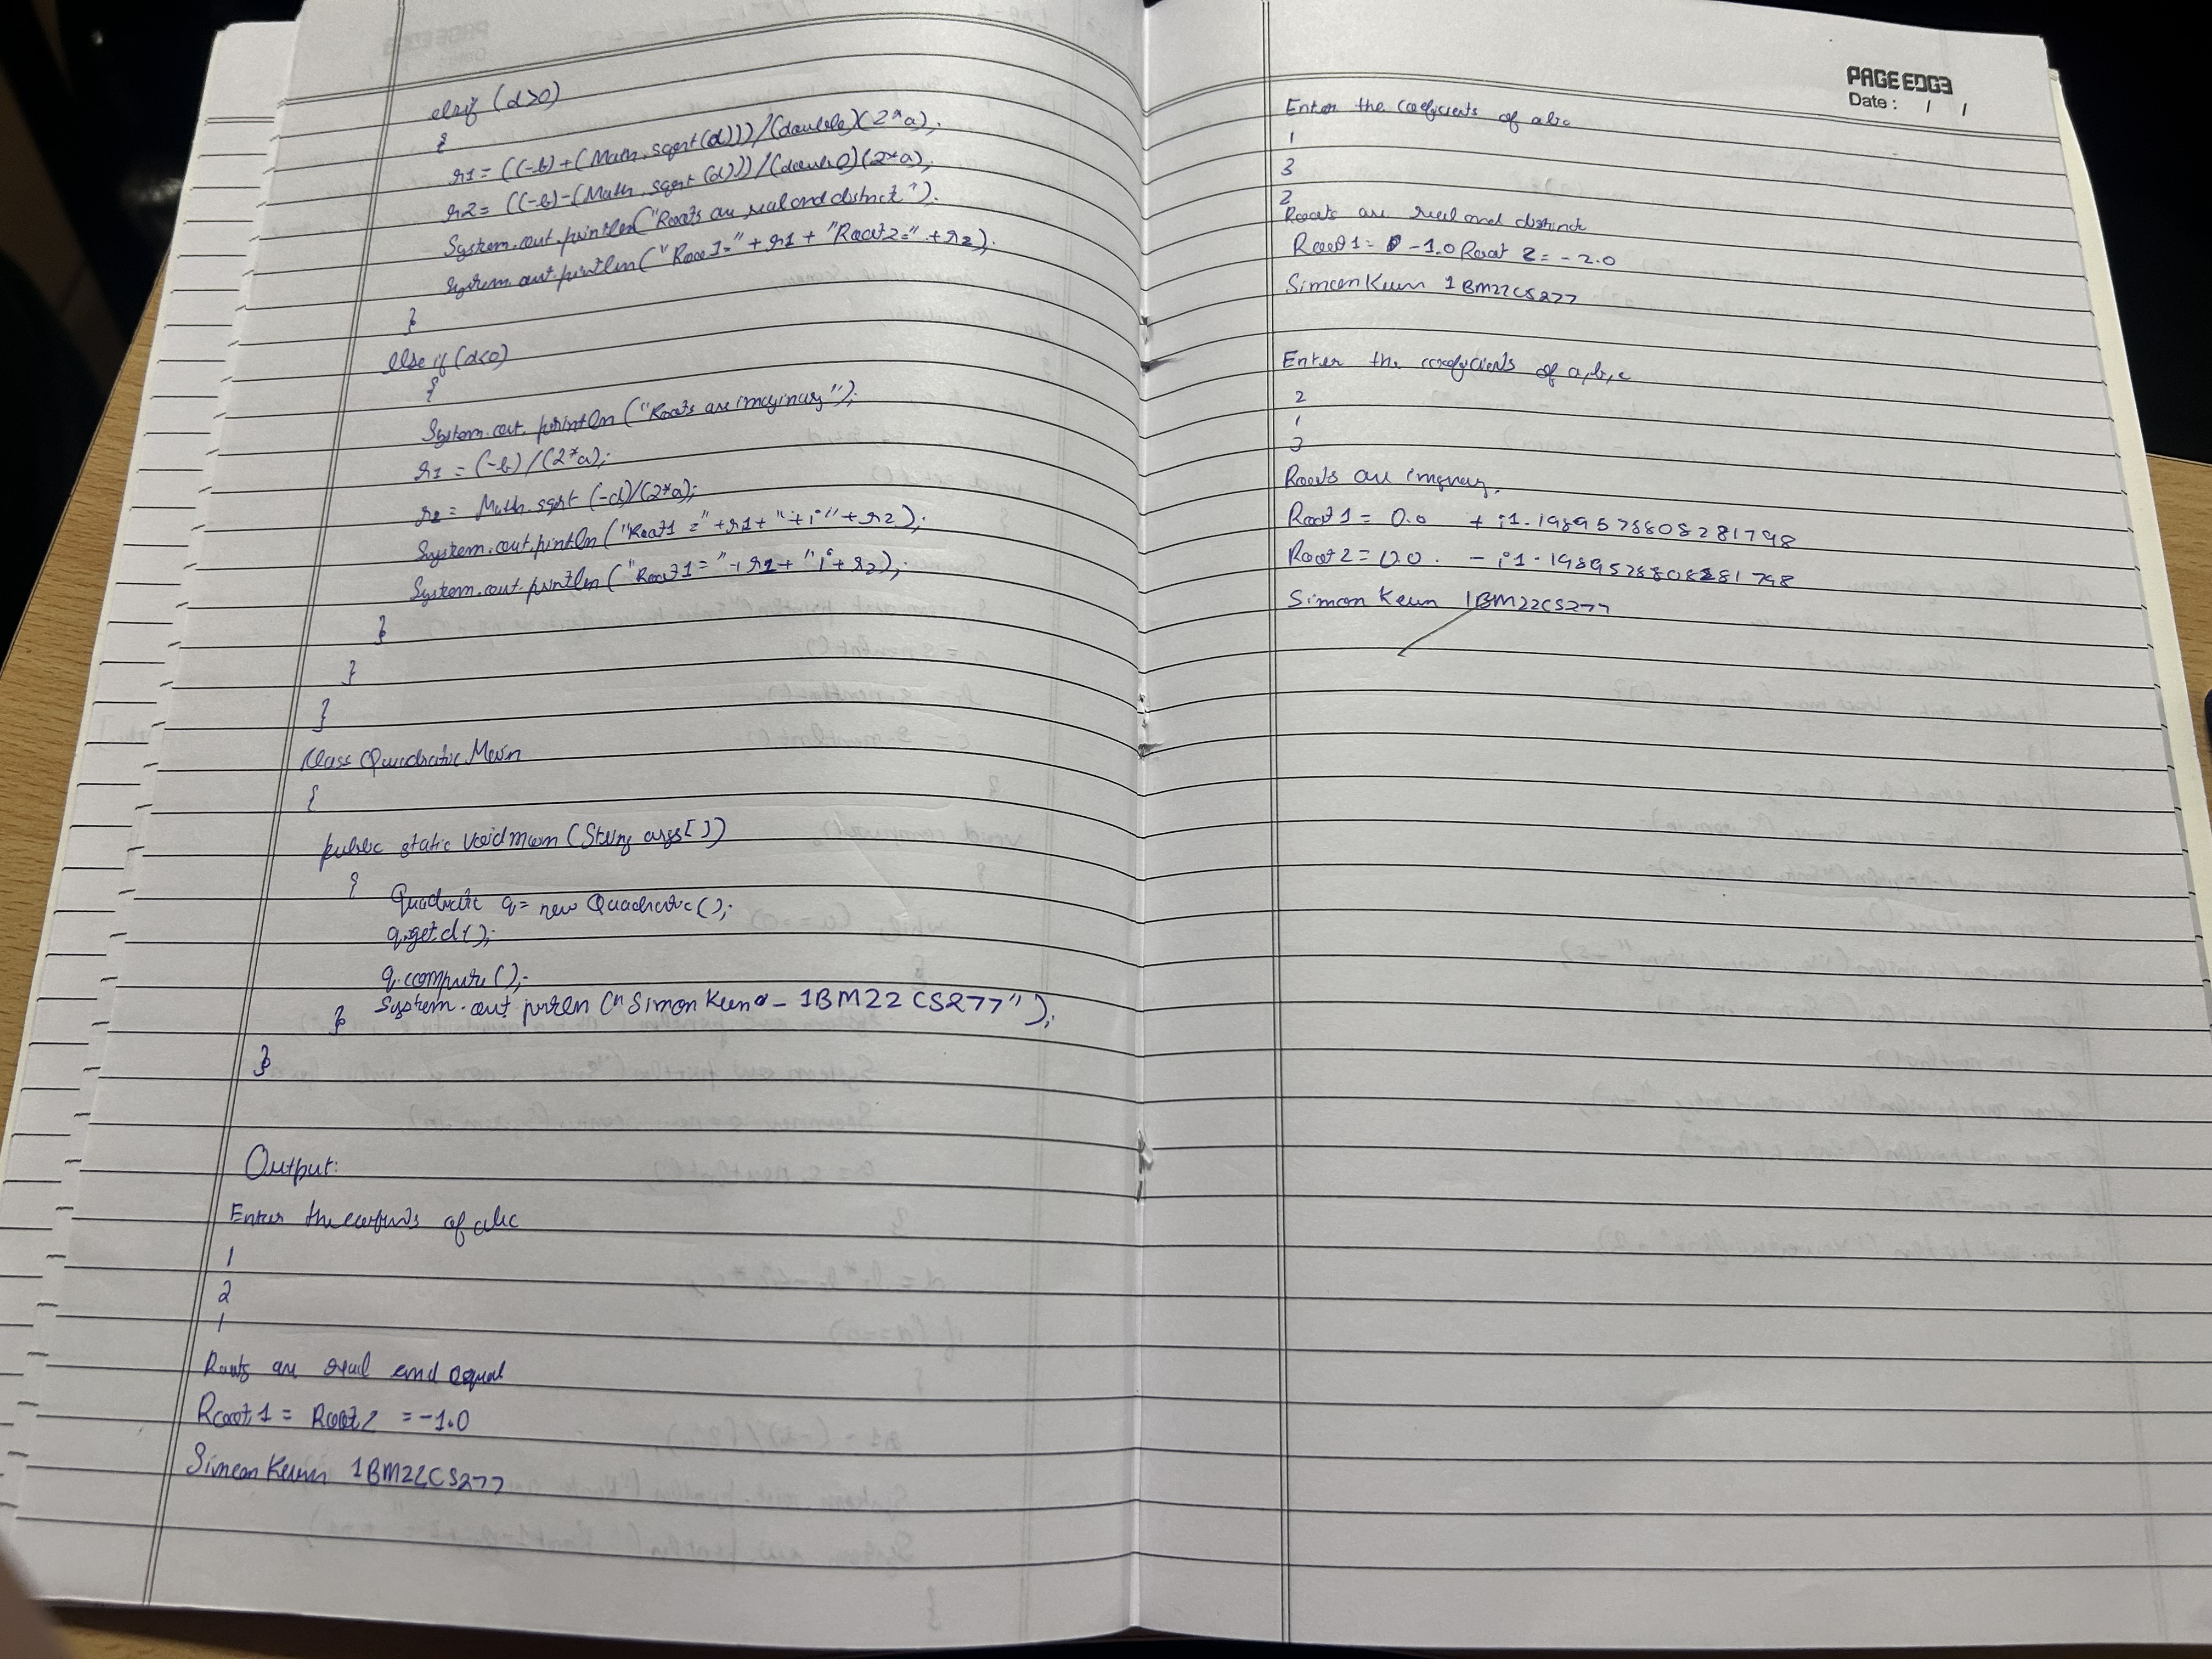 elsif (d>0)
{
r1 = ((-b)+(Math.sqrt(d)))/(double)(2*a);
r2 = ((-b)-(Math.sqrt(d)))/(double)(2*a);
System.out.println("Roots are real and distinct");
System.out.println("Root1=" + r1 + "Root2=" + r2);
}
else if (d<0)
{
System.out.println("Roots are imaginary");
r1 = (-b)/(2*a);
r2 = Math.sqrt(-d)/(2*a);
System.out.println("Root1 =" + r1 + "+i" + r2);
System.out.println("Root1=" + r1 + "-i" + r2);
}
}
}
Class QuadraticMain
{
public static void main(String args[])
{
Quadratic q = new Quadratic();
q.getd();
q.compute();
System.out.println("Simon Kend - 1BM22CS277");
}
}
Output:
Enter the of abc
1
2
1
Roots are equal and equal
Root1 = Root2 = -1.0
Simon Kevin 1BM22CS277
PAGE EDGE
Date: / /
Enter the coefficients of abc
1
3
2
Roots are real and distinct
Root1 = -1.0 Root 2 = -2.0
Simon Kevin 1BM22CS277
Enter the coefficients of a,b,c
2
1
3
Roots are imaginary.
Root 1 = 0.0 + i1.1989578808281798
Root 2 = 0.0 - i1.1989578808281798
Simon Kevin 1BM22CS277